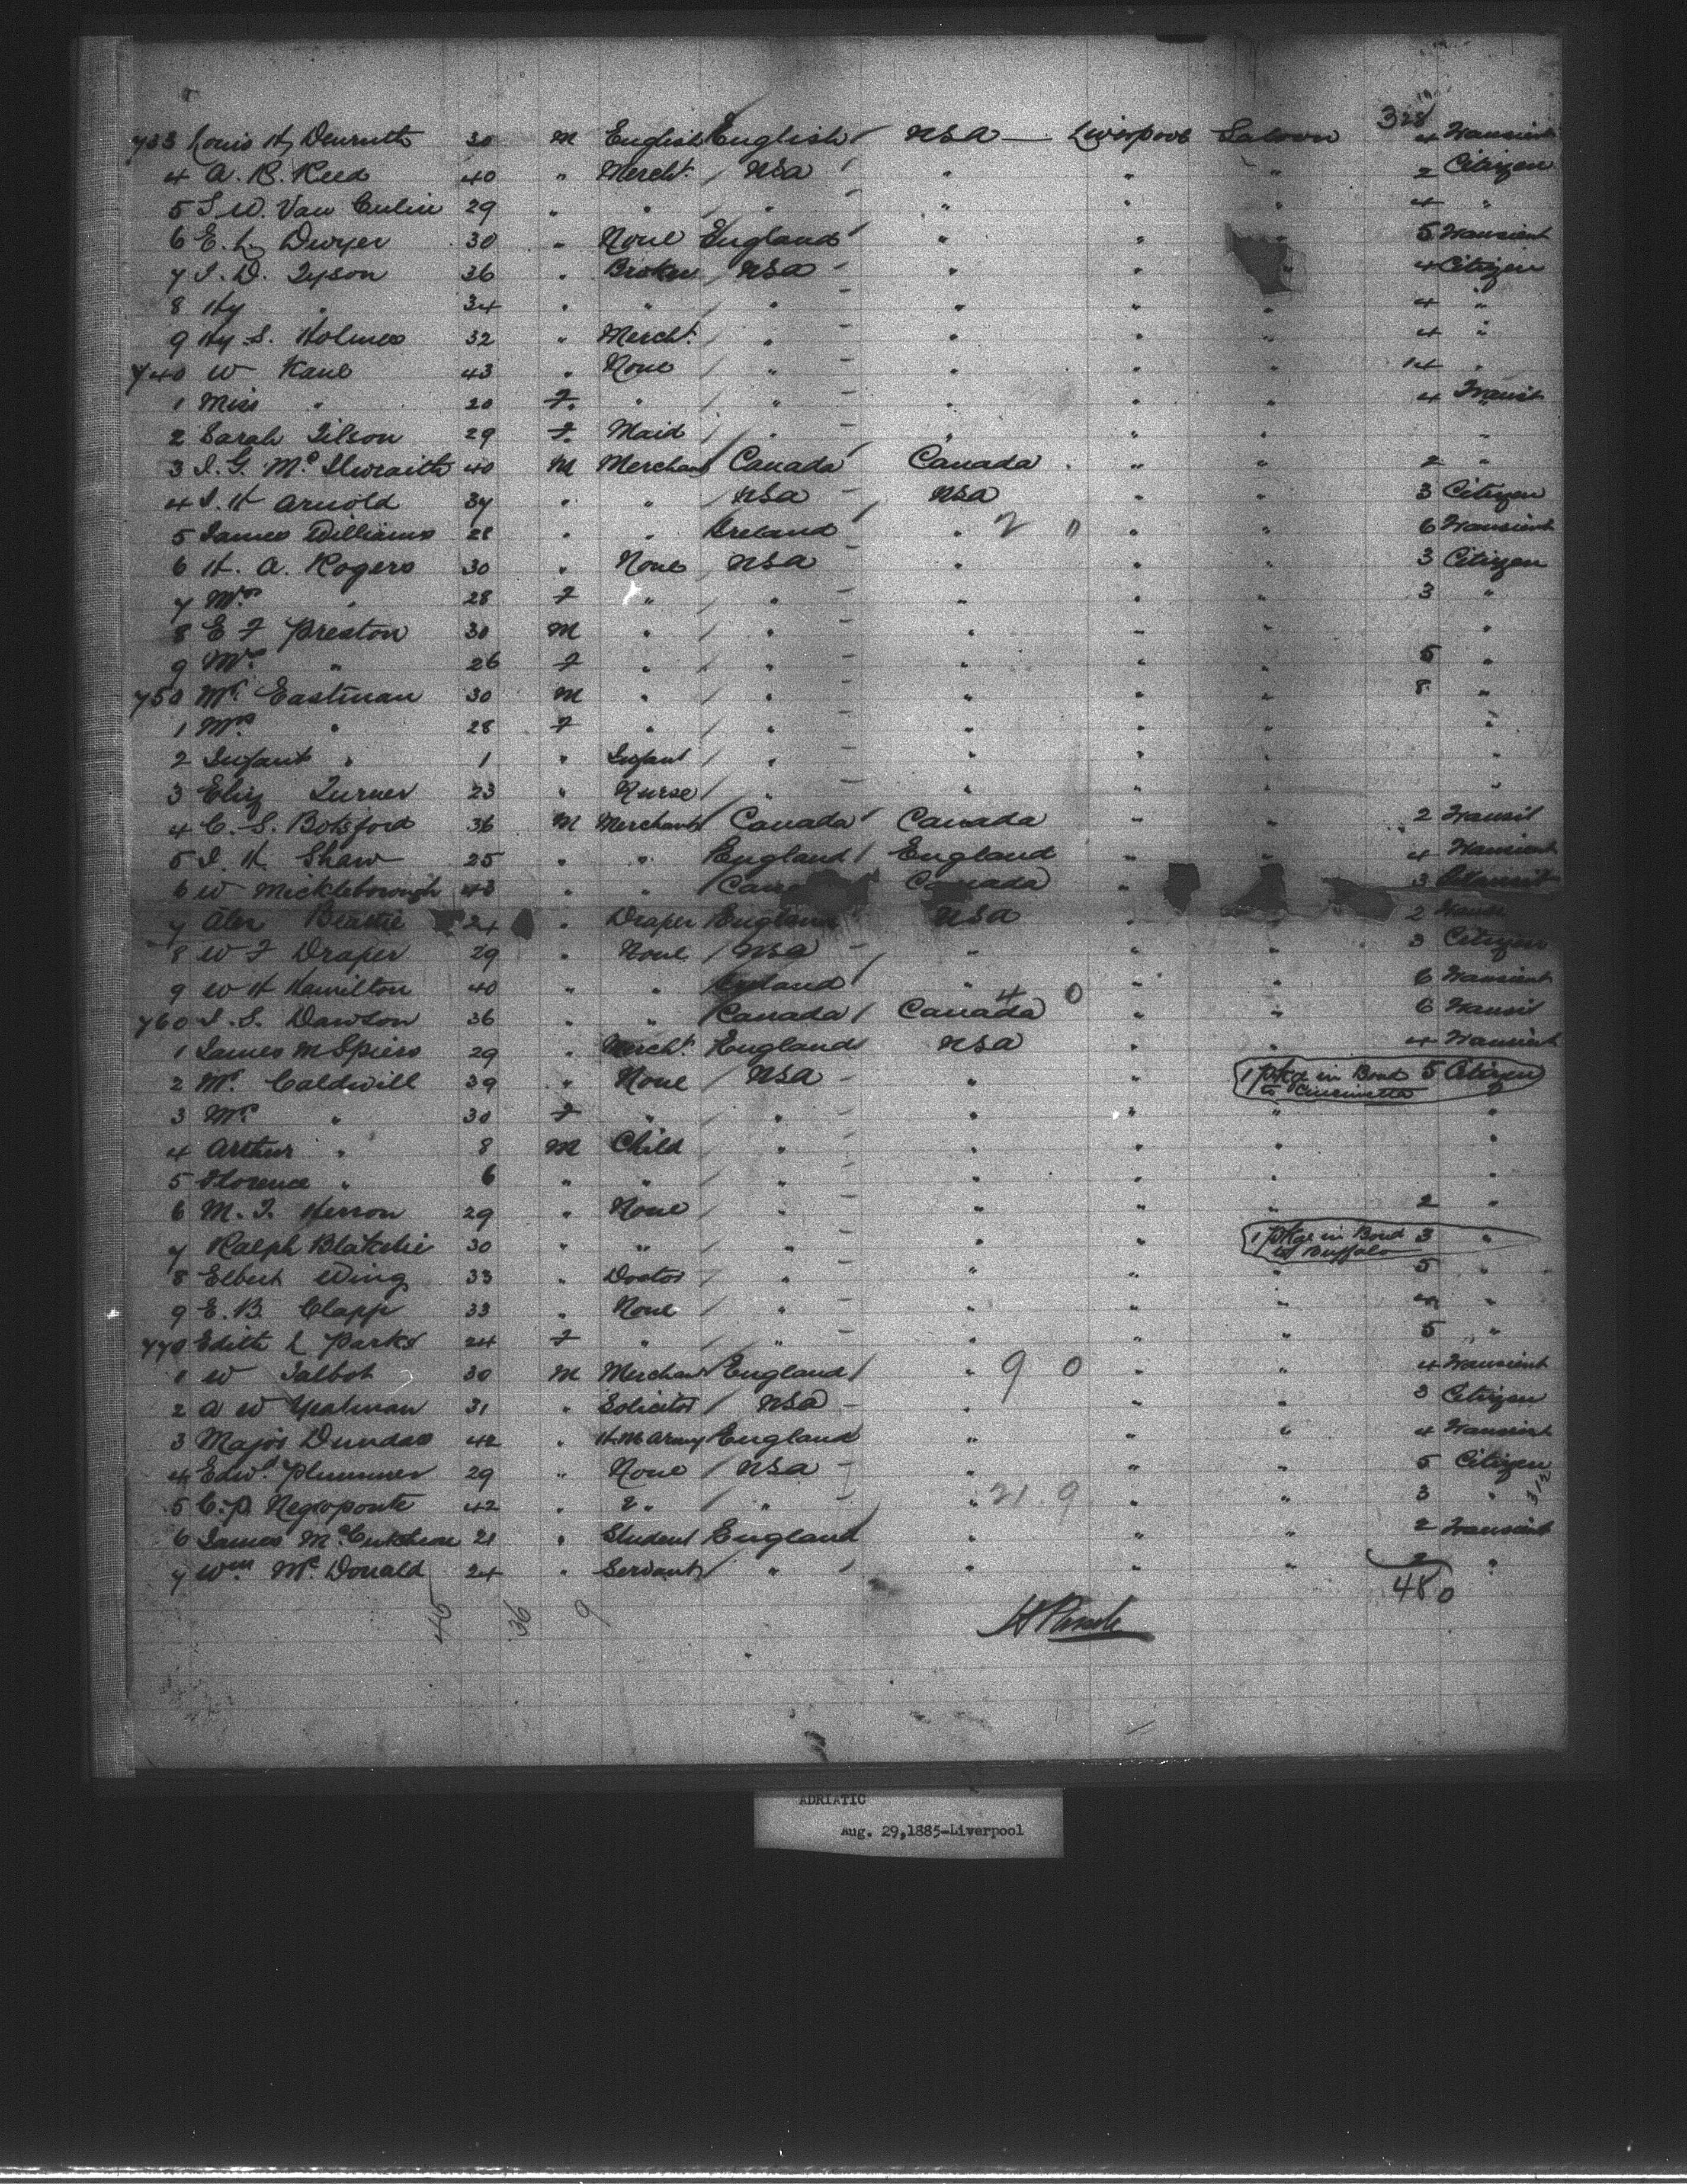 328
733 Louis Hy 30 M English English USA Liverpool Saloon 4 Transient
4 A. B. Reed 40 " Mercht. USA " " " 2 Citizen
5 S W. Van Culin 29 " " " " " " 4 "
6 E. Hy Dwyer 30 " None England " " " 5 Transient
7 J. D. Tyson 36 " Broker USA " " " 4 Citizen
8 Hy " 34 " " " " " " 4 "
9 Hy S. Holmes 32 " Mercht. " " " " 4 "
740 W Kane 43 " None " " " " 14 "
1 Miss " 20 F. " " " " " 4 Transit
2 Sarah Tilson 29 F. Maid " " " " "
3 J. G. McIlwraith 40 M Merchant Canada Canada " " 2 "
4 J. H Arnold 37 " " USA USA " " 3 Citizen
5 James Williams 28 " " Ireland " 2 0 " " 6 Transient
6 H. A. Rogers 30 " None USA " " " 3 Citizen
7 Mrs " 28 F " " " " " 3 "
8 E F Preston 30 M " " " " " "
9 Mrs " 26 F " " " " " 5 "
750 Mr. Eastman 30 M " " " " " 8 "
1 Mrs " 28 F " " " " " "
2 Infant " 1 " Infant " " " " "
3 Eliz Turner 23 " Nurse " " " " "
4 C. S. Botsford 36 M Merchant Canada Canada " " 2 Transit
5 J. H Shaw 25 " " England England " " 4 Transient
6 W Mickleborough 43 " " Canada " 3 Transit
7 Alex Beattie 24 " Draper England USA " 2
8 W F Draper 29 " None USA " " " 3 Citizen
9 W H Hamilton 40 " " " 4 0 " " 6 Transient
760 J. S. Dawson 36 " " Canada Canada " " 6 Transit
1 James M Spiers 29 " Mercht. England USA " " 4 Transient
2 Mr. Caldwell 39 " None USA " " 1 pkge in Bond to Cincinnatti 5 Citizen
3 Mrs " 30 F " " " " " "
4 Arthur " 8 M Child " " " " "
5 Florence " 6 " " " " " " "
6 M. J. Herron 29 " None " " " " 2 "
7 Ralph Blakelie 30 " " " " " 1 pkge in Bond to Buffalo 3 "
8 Elbert Wing 33 " Doctor " " " " 5 "
9 E. B. Clapp 33 " None " " " " "
770 Edith L Parks 24 F " " " " " 5 "
1 W Talbot 30 M Merchant England " 9 0 " " 4 Transient
2 A W Yeatman 31 " Solicitor USA " " " 3 Citizen
3 Major Dundas 42 " H.M Army England " " " 4 Transient
4 Edwd. Plummer 29 " None USA " " " 5 Citizen
5 C. P. Negroponte 42 " " " " 21 9 " " 3 " 312
6 James McCutcheon 21 " Student England " " " 2 Transient
7 Wm McDonald 24 " Servant " " " " 2 "
480
45 36 9
ADRIATIC
Aug. 29,1885-Liverpool